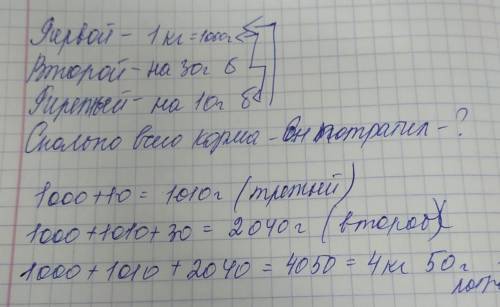 Первой - 1 кг = 1000г
Второй - на 30г б
Третьей - на 10г б
Сколько всего корма - Он потратил - ?
1000+10 = 1010г (третней)
1000+1010+30 = 2040г (второй)
1000+1010+2040 = 4050 = 4 кг 50 г